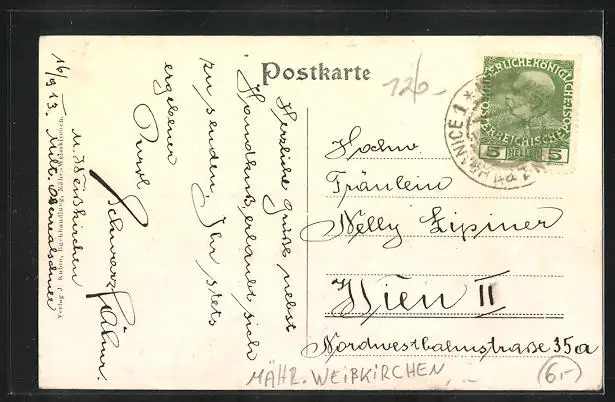 Postkarte
120-
16/9 13.
M. Weißkirchen
Mil. Oberrealschule
Herzliche Grüße nebst
Handkuß erlaubt sich
zu senden Ihr stets
ergebener
Schwarz
Verlag J. Kuhn, Buchhandlung, Mähr.-Weisskirchen.
KAISERLICHE KÖNIGLICHE ÖSTERREICHISCHE POST
5 HELLER 5
HRANICE 1
Hochw.
Fräulein
Nelly Lipiner
Wien II
Nordwestbahnstraße 35a
MÄHR. WEIßKIRCHEN
6,-